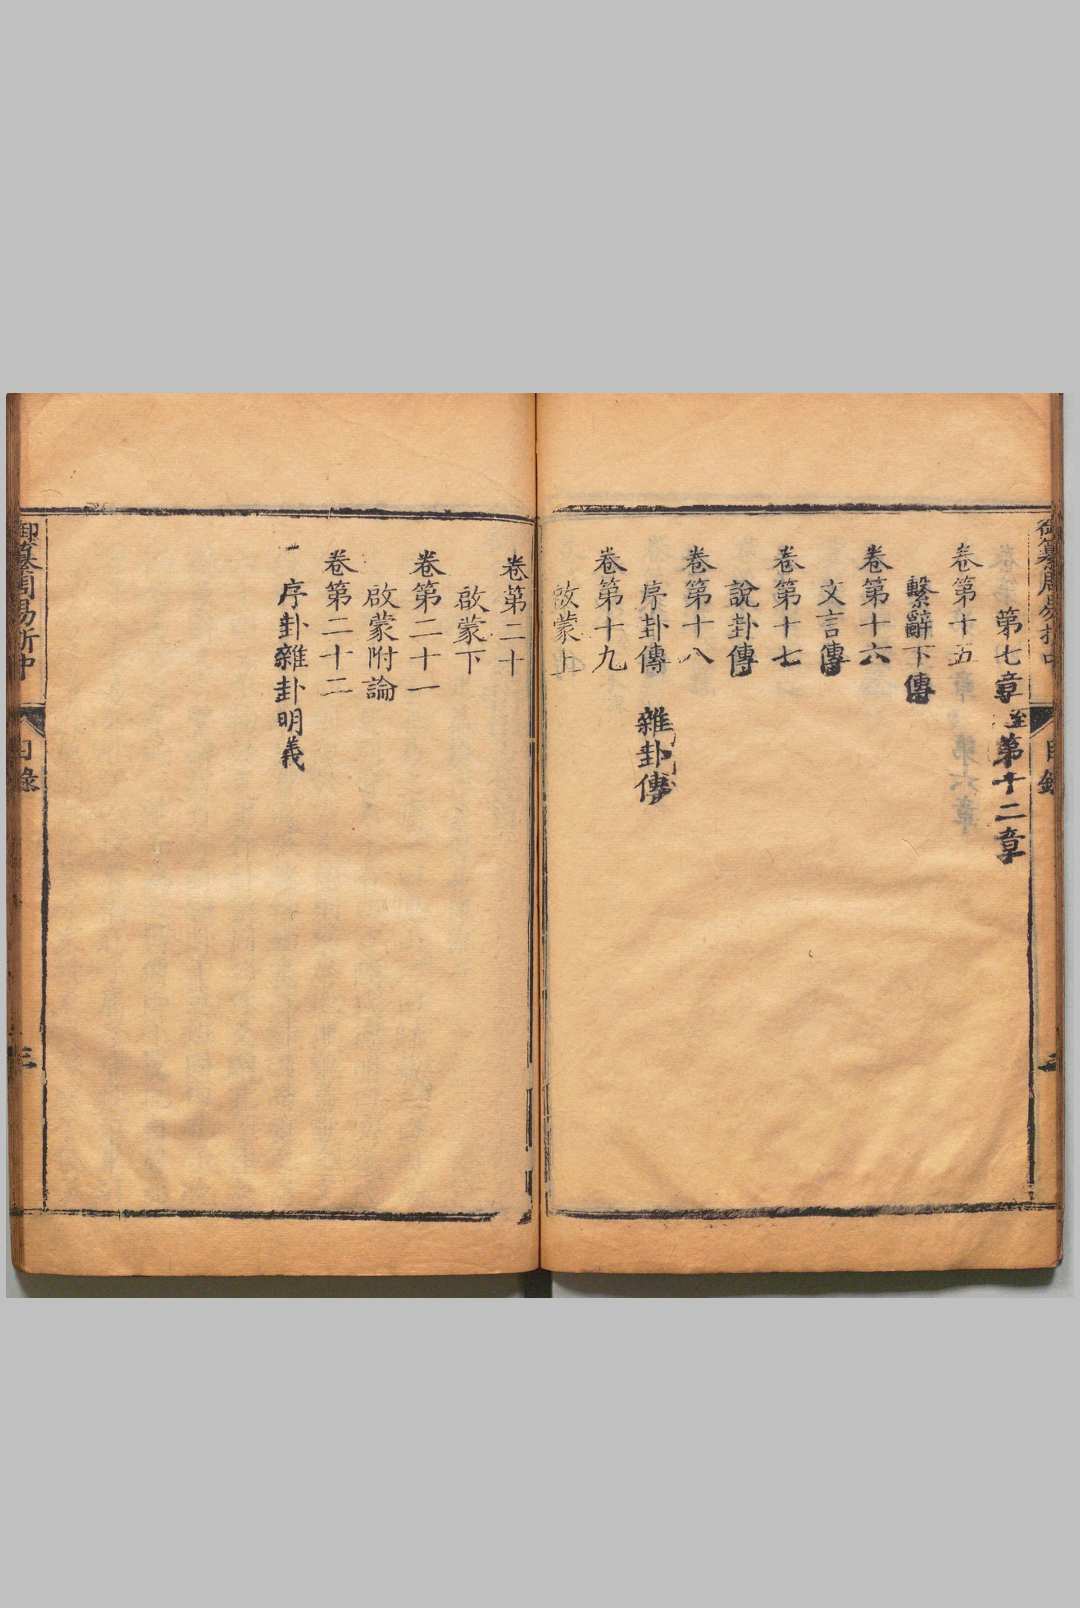 第七章至第十二章
卷第十五
繫辭下傳
卷第十六
文言傳
卷第十七
說卦傳
卷第十八
序卦傳 雜卦傳
卷第十九
啟蒙上
卷第二十
啟蒙下
卷第二十一
啟蒙附論
卷第二十二
序卦雜卦明義
御纂周易折中
目錄
三